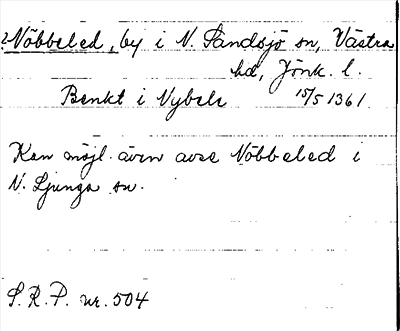 ?Nöbbeled, by i N. Sandsjö sn, Västra
hd, Jönk. l.
Benkt i Nybele 15/5 1361
Kan möjl. även avse Nöbbeled i
N. Ljunga sn.
S.R.P. nr. 504